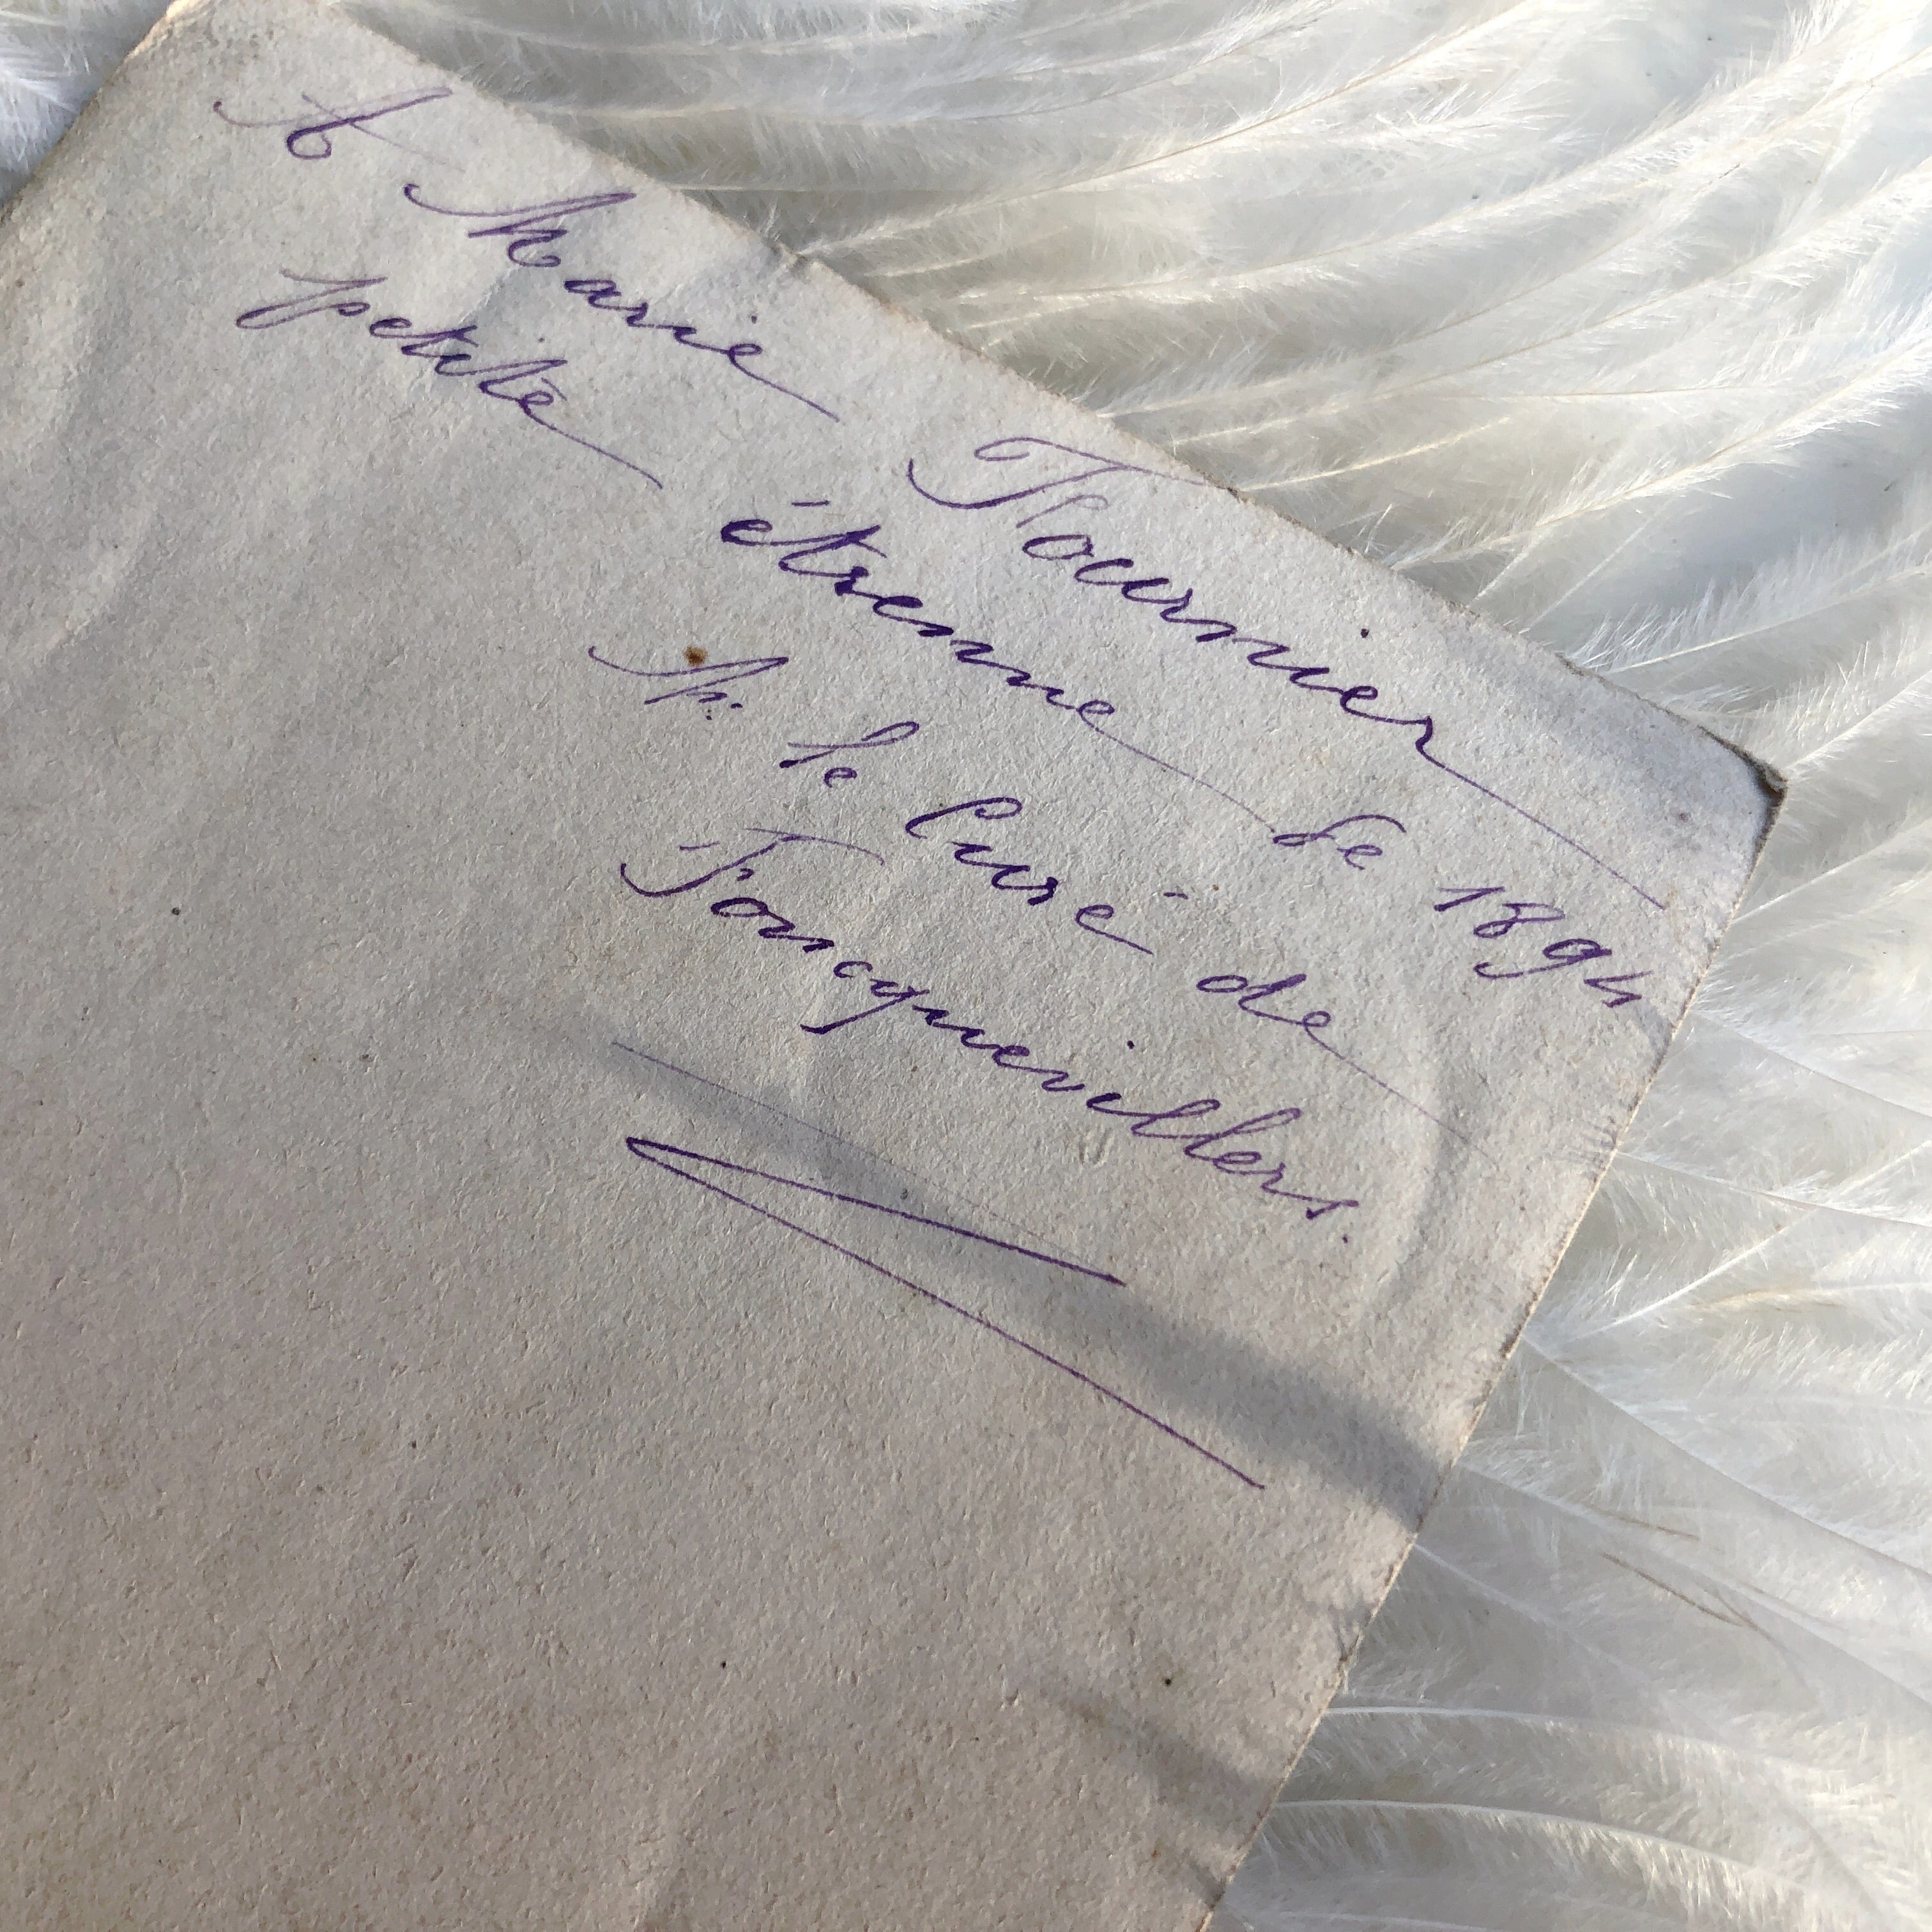 A Marie Fournier
petite étrenne de 1894
M. le Curé de
Foncquevillers.